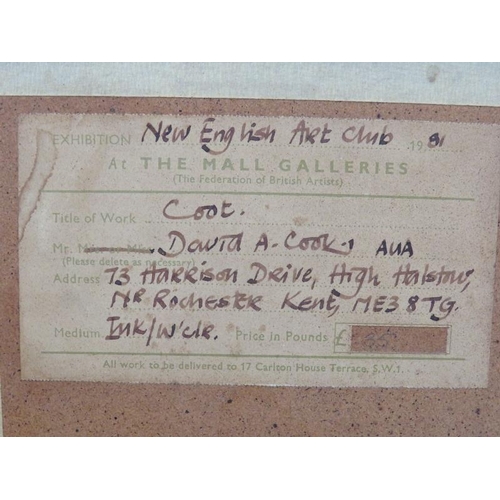 EXHIBITION New English Art Club 1981
At THE MALL GALLERIES
(The Federation of British Artists)
Title of Work Coot.
Mr. David A. Cook, AUA
(Please delete as necessary)
Address 73 Harrison Drive, High Halstow,
Nr Rochester Kent, ME3 8TG.
Medium Ink/w'clr. Price in Pounds £
All work to be delivered to 17 Carlton House Terrace, S.W.1.